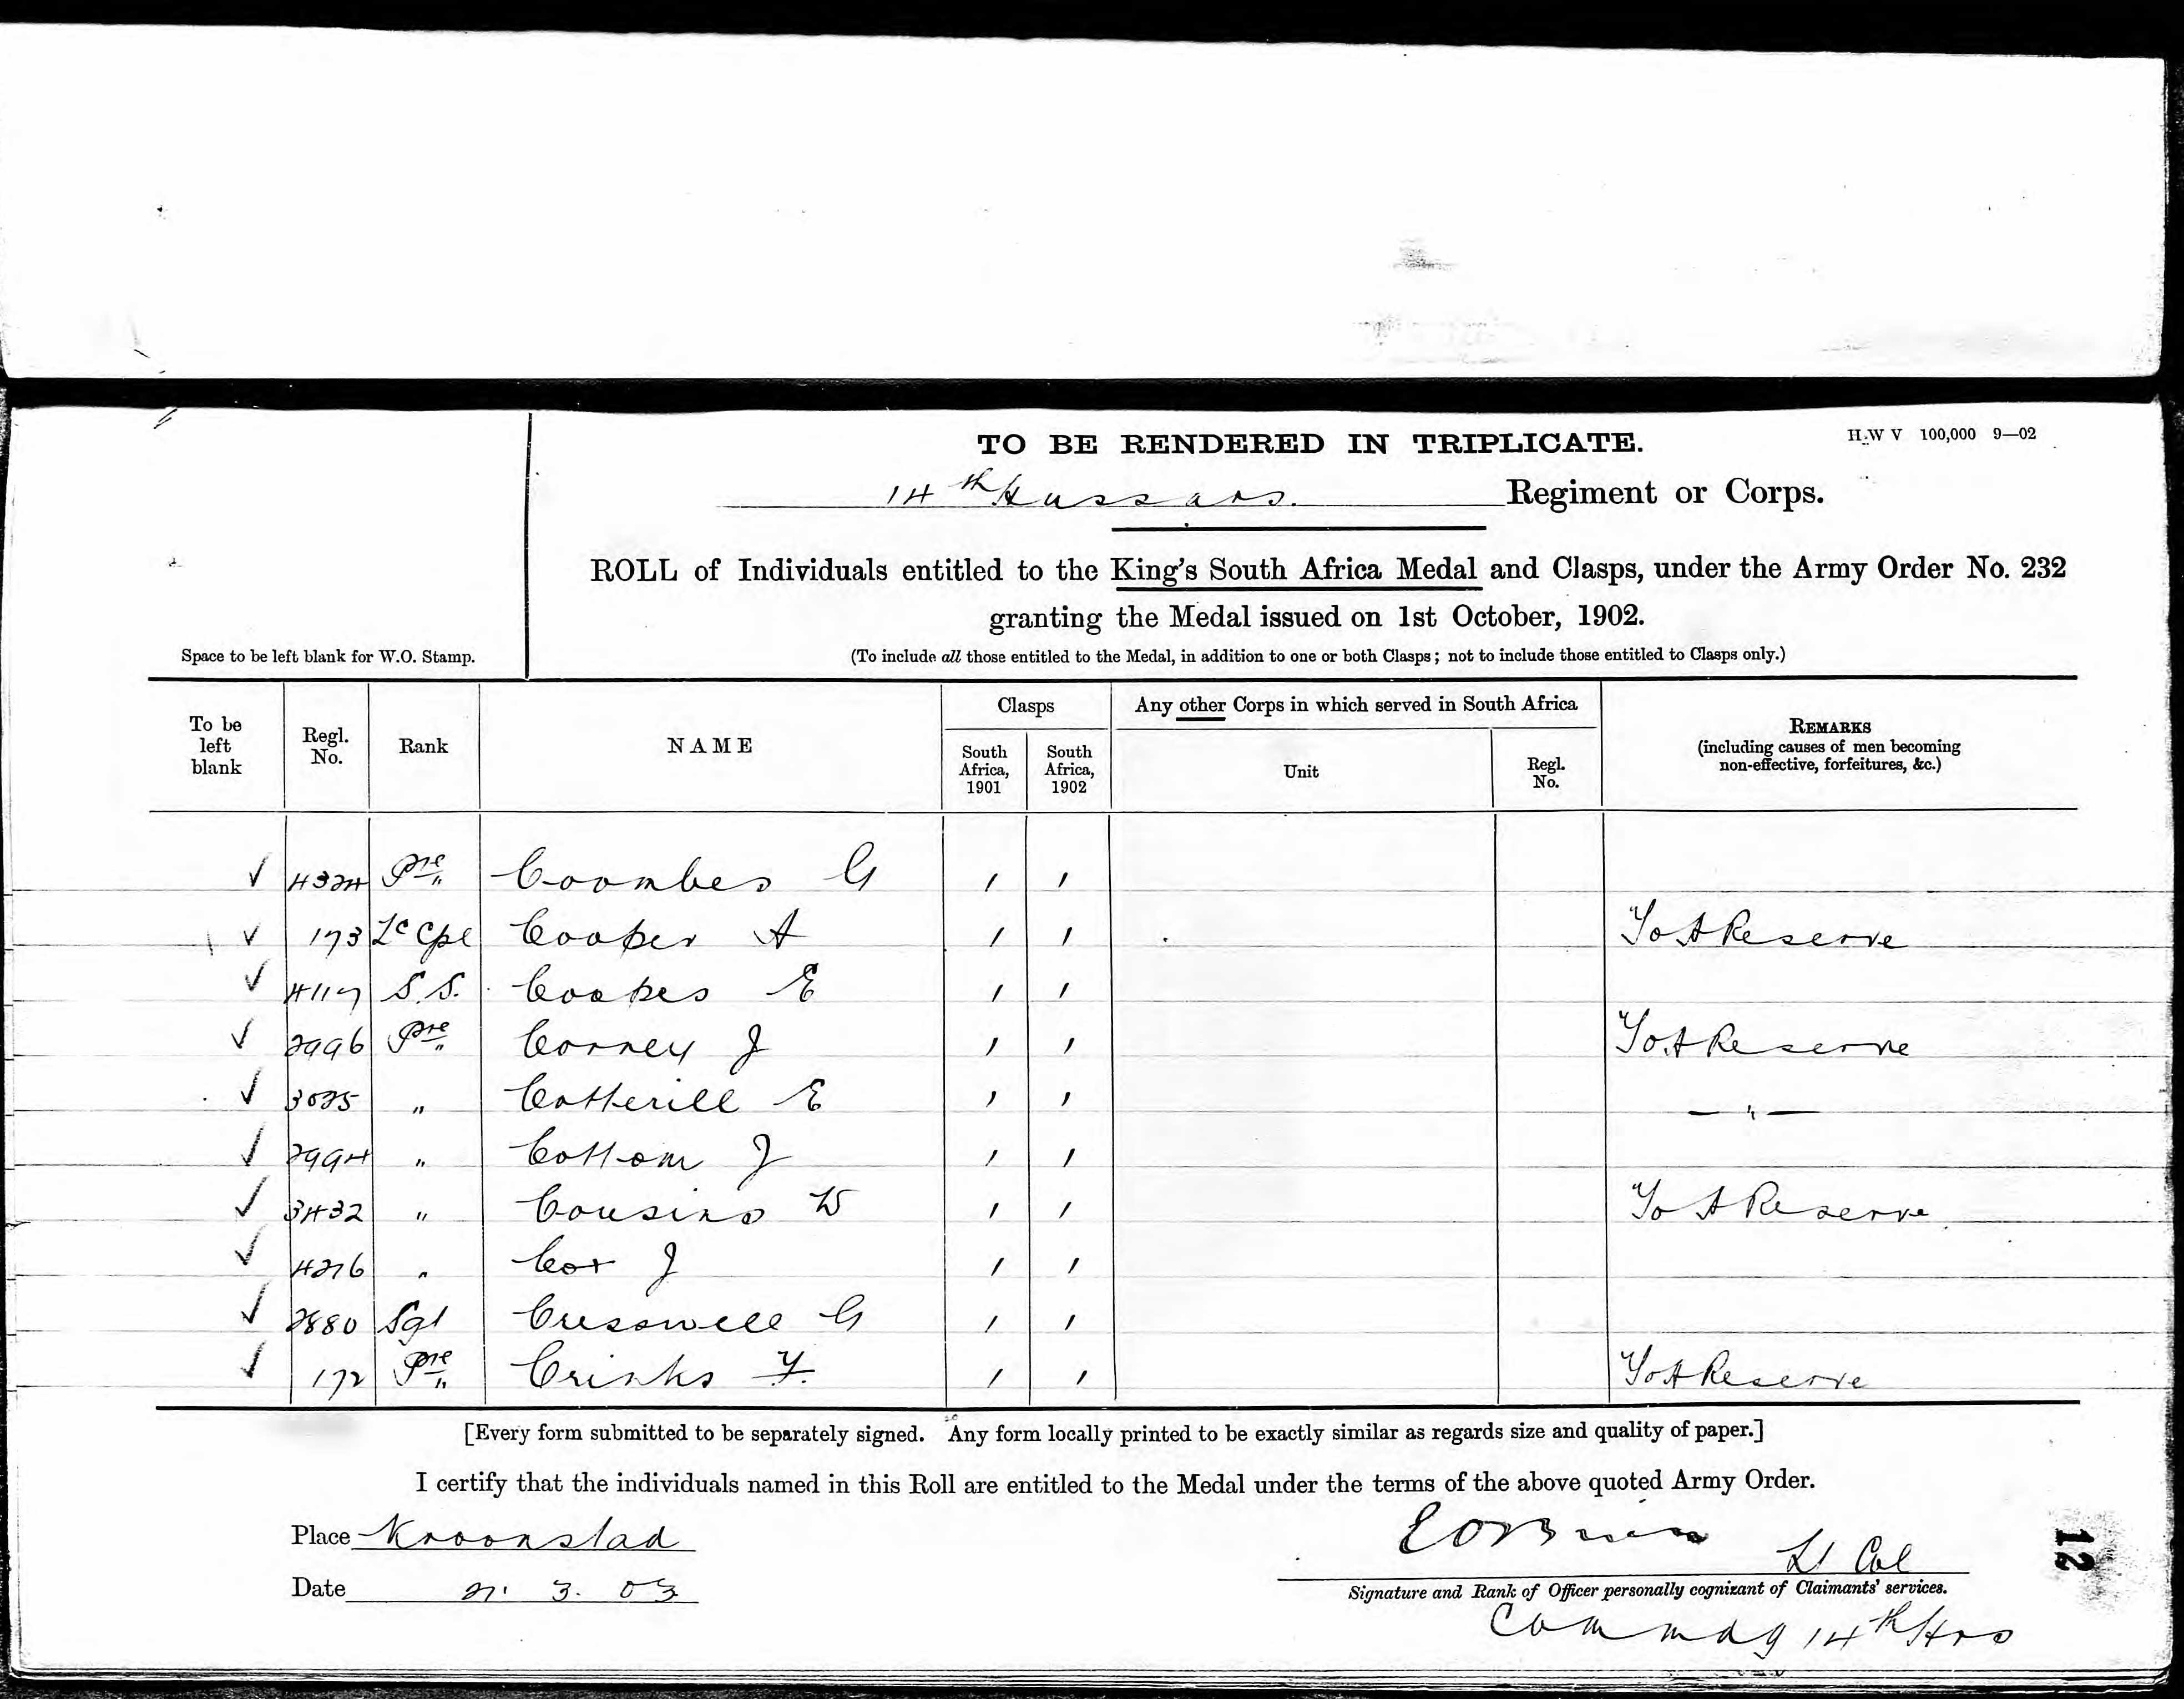 TO BE RENDERED IN TRIPLICATE.
H.W V 100,000 9—02
14th Hussars. Regiment or Corps.
ROLL of Individuals entitled to the King's South Africa Medal and Clasps, under the Army Order No. 232
granting the Medal issued on 1st October, 1902.
Space to be left blank for W.O. Stamp.
(To include all those entitled to the Medal, in addition to one or both Clasps; not to include those entitled to Clasps only.)
To be left blank Regl. No. Rank NAME Clasps South Africa, 1901 South Africa, 1902 Any other Corps in which served in South Africa Unit Regl. No. REMARKS (including causes of men becoming non-effective, forfeitures, &c.)
✓ 4324 Pte Coombes G / /
✓ 173 Lc Cpl Cooper A / / To A Reserve
✓ 4117 S.S. Coopes E / /
✓ 2996 Pte Corney J / / To A Reserve
✓ 3025 " Cotterill E / / — " —
✓ 2994 " Cottom J / /
✓ 3432 " Cousins W / / To A Reserve
✓ 4276 " Cox J / /
✓ 2880 Sgt Cresswell G / /
✓ 172 Pte Crinks F. / / To A Reserve
[Every form submitted to be separately signed. Any form locally printed to be exactly similar as regards size and quality of paper.]
I certify that the individuals named in this Roll are entitled to the Medal under the terms of the above quoted Army Order.
Place Kroonstad
Lt Col
Date 3. 03
Signature and Rank of Officer personally cognizant of Claimants' services.
Commdg 14th Hrs
12